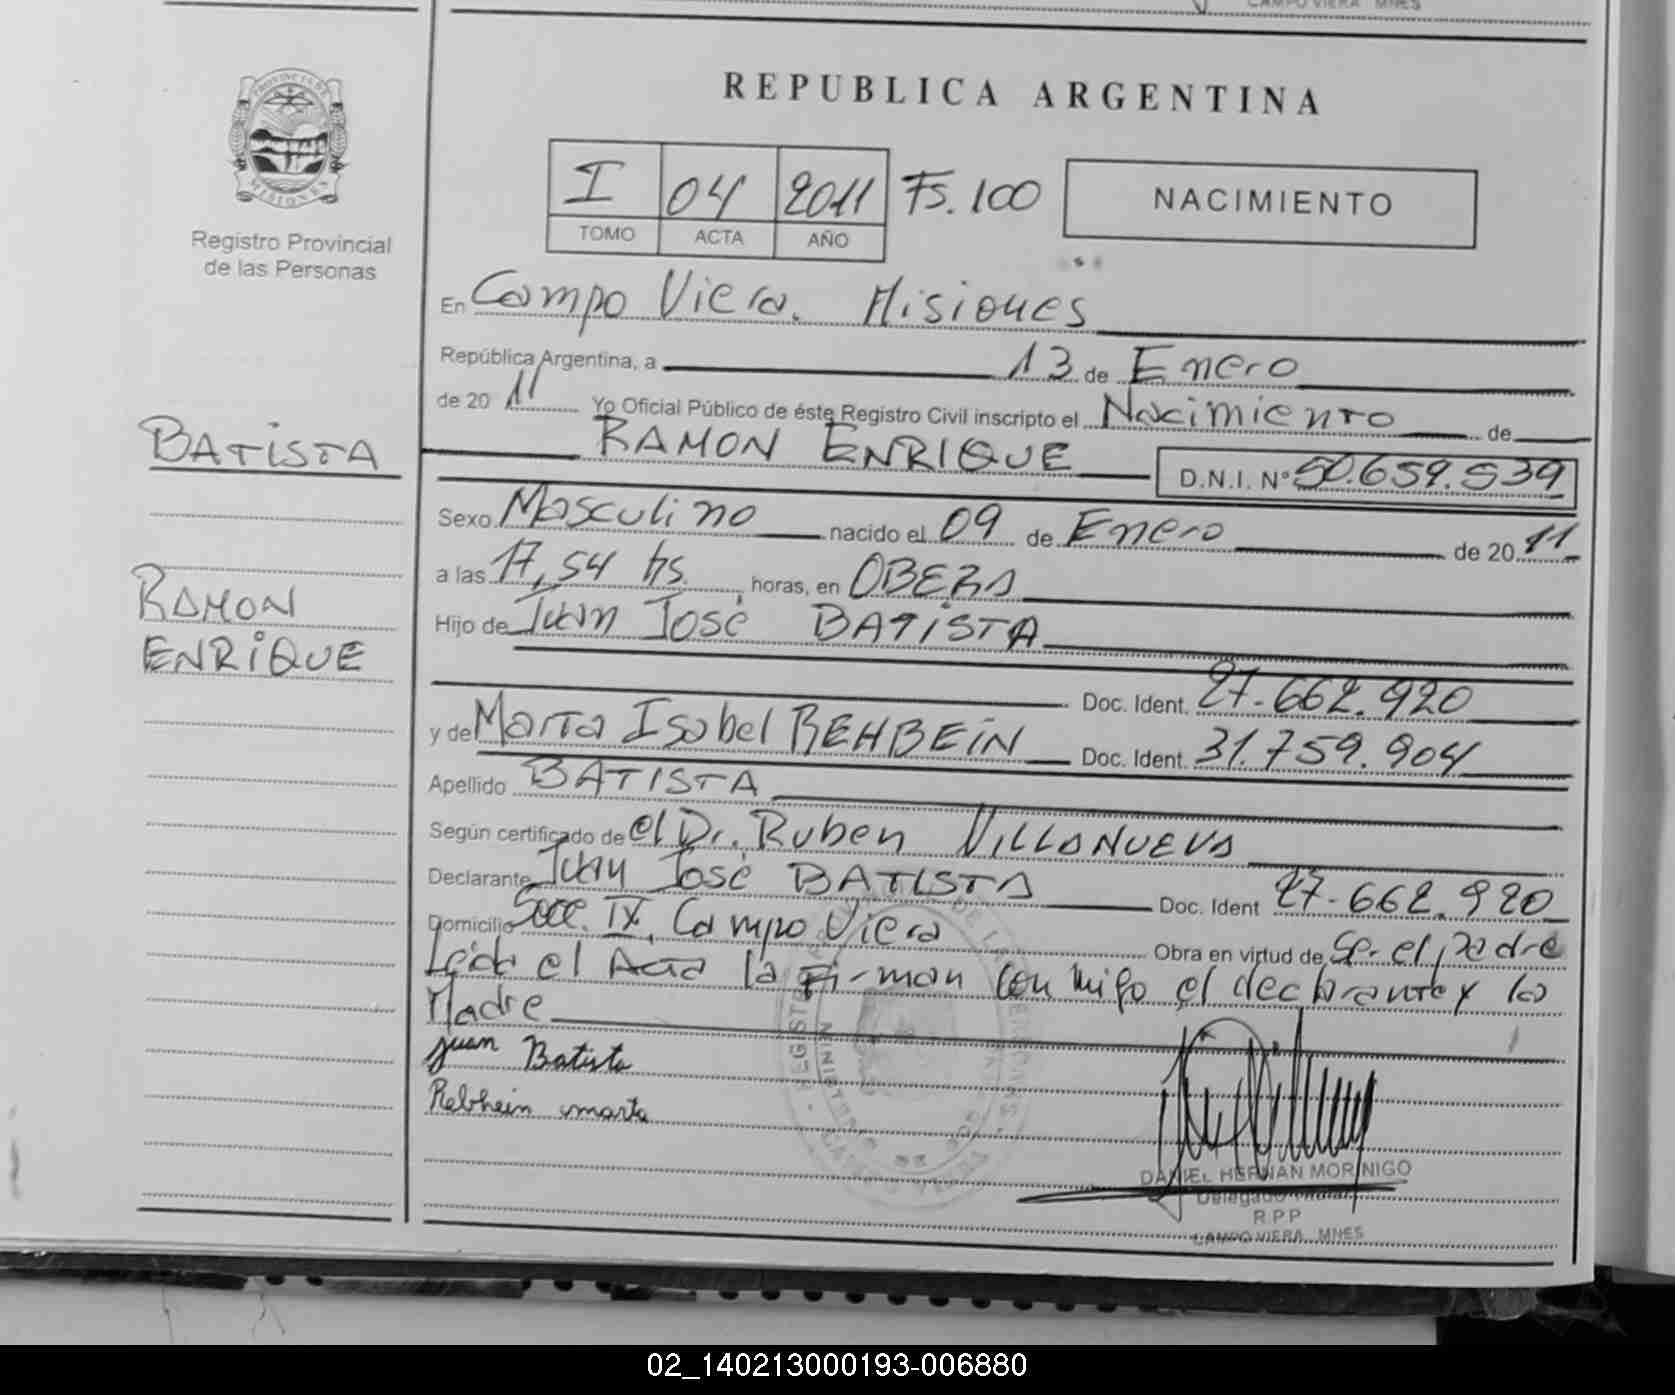 CAMPO VIERA MNES
REPUBLICA ARGENTINA
PROVINCIA DE
MISIONES
Registro Provincial
de las Personas
I 04 2011 Fs. 100
TOMO ACTA AÑO
NACIMIENTO
En Campo Viera. Misiones
República Argentina, a 13 de Enero
de 20 11 Yo Oficial Público de éste Registro Civil inscripto el Nacimiento de
BATISTA
RAMON ENRIQUE D.N.I. Nº 50.659.539
Sexo Masculino nacido el 09 de Enero de 20 11
a las 17,54 hs. horas, en OBERA
RAMON
ENRIQUE
Hijo de Juan José BATISTA
Doc. Ident. 27.662.920
y de Marta Isabel REHBEIN Doc. Ident. 31.759.904
Apellido BATISTA
Según certificado de el Dr. Ruben VILLANUEVA
Declarante Juan José BATISTA Doc. Ident 27.662.920
Domicilio Secc. IX, Campo Viera Obra en virtud de Ser el padre
Leída el Acta la Firman conmigo el declarante y la
Madre
juan Batista
Rebhein marta
DANIEL HERNAN MORINIGO
Delegado Titular
R.P.P
CAMPO VIERA MNES
02_140213000193-006880